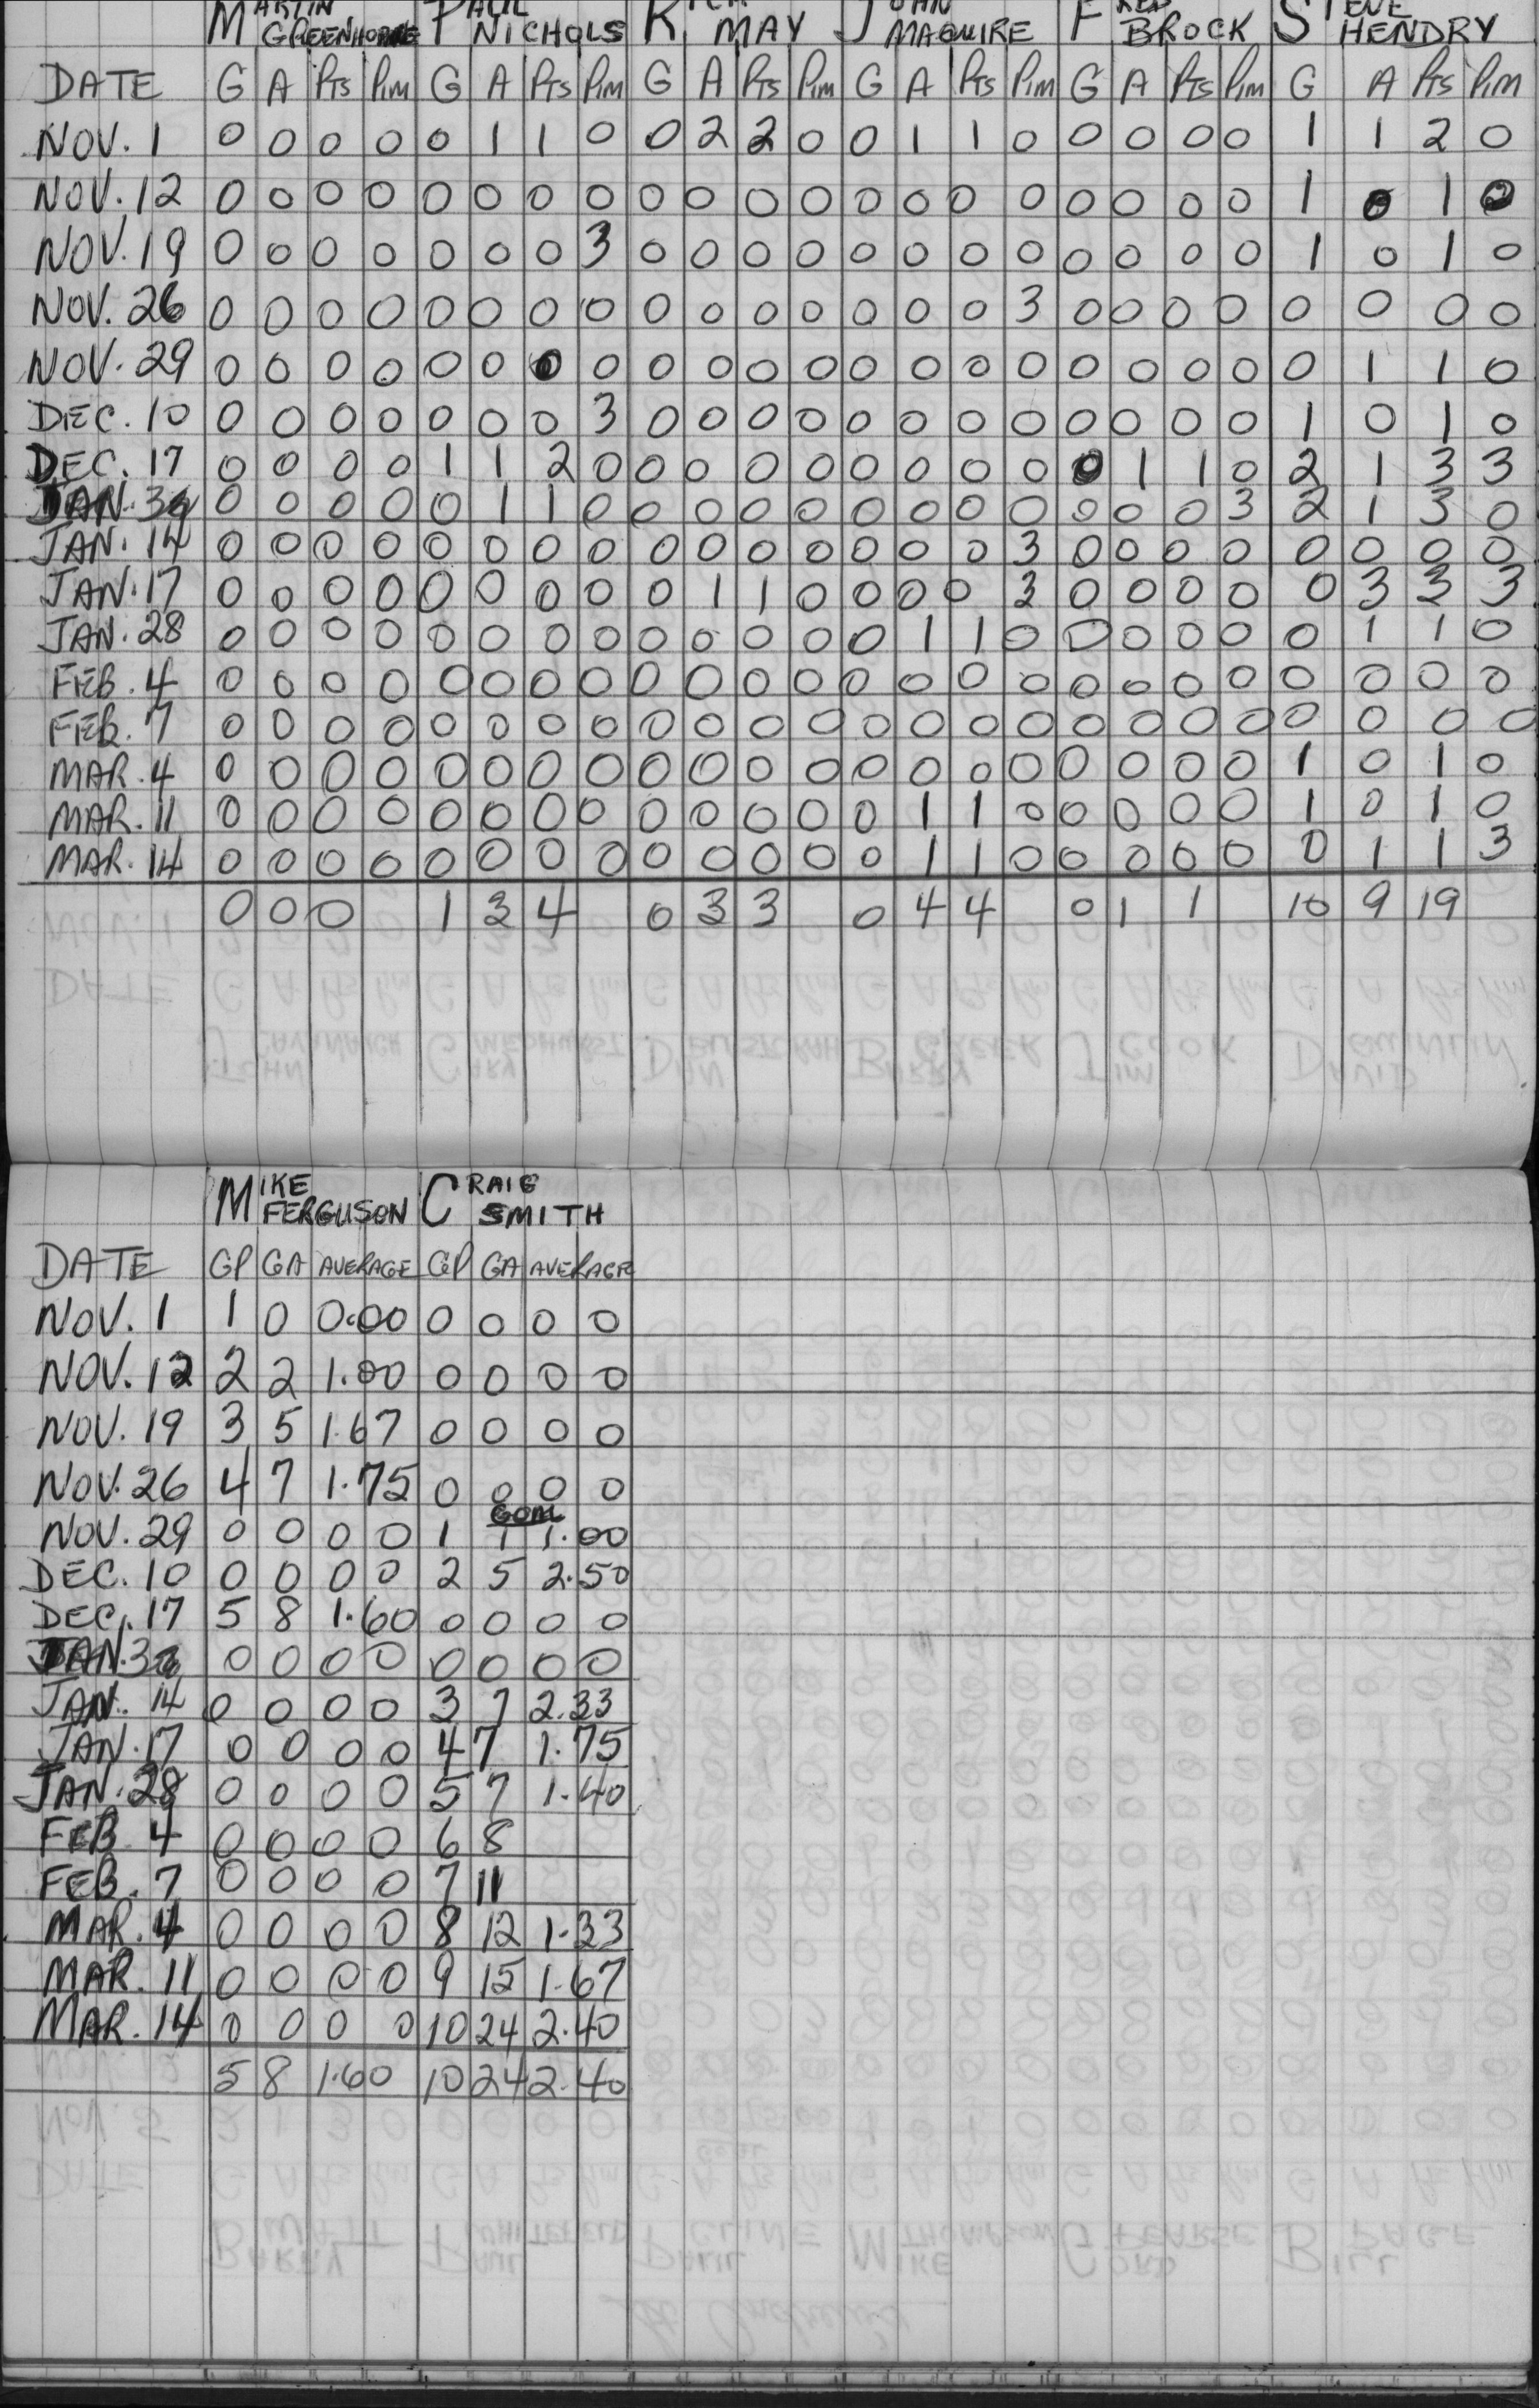 MARTIN PAUL RICK JOHN FRED STEVE
GREENHORNE NICHOLS MAY MAGUIRE BROCK HENDRY
DATE G A Pts Pim G A Pts Pim G A Pts Pim G A Pts Pim G A Pts Pim G A Pts Pim
NOV. 1 0 0 0 0 0 1 1 0 0 2 2 0 0 1 1 0 0 0 0 0 1 1 2 0
NOV. 12 0 0 0 0 0 0 0 0 0 0 0 0 0 0 0 0 0 0 0 0 1 0 1 0
NOV. 19 0 0 0 0 0 0 0 3 0 0 0 0 0 0 0 0 0 0 0 0 1 0 1 0
NOV. 26 0 0 0 0 0 0 0 0 0 0 0 0 0 0 0 3 0 0 0 0 0 0 0 0
NOV. 29 0 0 0 0 0 0 0 0 0 0 0 0 0 0 0 0 0 0 0 0 0 1 1 0
DEC. 10 0 0 0 0 0 0 0 3 0 0 0 0 0 0 0 0 0 0 0 0 1 0 1 0
DEC. 17 0 0 0 0 1 1 2 0 0 0 0 0 0 0 0 0 0 1 1 0 2 1 3 3
JAN. 3 0 0 0 0 0 1 1 0 0 0 0 0 0 0 0 0 0 0 0 3 2 1 3 0
JAN. 14 0 0 0 0 0 0 0 0 0 0 0 0 0 0 0 3 0 0 0 0 0 0 0 0
JAN. 17 0 0 0 0 0 0 0 0 0 1 1 0 0 0 0 3 0 0 0 0 0 3 3 3
JAN. 28 0 0 0 0 0 0 0 0 0 0 0 0 0 1 1 0 0 0 0 0 0 1 1 0
FEB. 4 0 0 0 0 0 0 0 0 0 0 0 0 0 0 0 0 0 0 0 0 0 0 0 0
FEB. 7 0 0 0 0 0 0 0 0 0 0 0 0 0 0 0 0 0 0 0 0 0 0 0 0
MAR. 4 0 0 0 0 0 0 0 0 0 0 0 0 0 0 0 0 0 0 0 0 1 0 1 0
MAR. 11 0 0 0 0 0 0 0 0 0 0 0 0 0 1 1 0 0 0 0 0 1 0 1 0
MAR. 14 0 0 0 0 0 0 0 0 0 0 0 0 0 1 1 0 0 0 0 0 0 1 1 3
0 0 0 1 3 4 0 3 3 0 4 4 0 1 1 10 9 19
MIKE CRAIG
FERGUSON SMITH
DATE GP GA AVERAGE GP GA AVERAGE
NOV. 1 1 0 0.00 0 0 0 0
NOV. 12 2 2 1.00 0 0 0 0
NOV. 19 3 5 1.67 0 0 0 0
NOV. 26 4 7 1.75 0 0 0 0
GOAL
NOV. 29 0 0 0 0 1 1 1.00
DEC. 10 0 0 0 0 2 5 2.50
DEC. 17 5 8 1.60 0 0 0 0
JAN. 3 0 0 0 0 0 0 0 0
JAN. 14 0 0 0 0 3 7 2.33
JAN. 17 0 0 0 0 4 7 1.75
JAN. 28 0 0 0 0 5 7 1.40
FEB 4 0 0 0 0 6 8
FEB. 7 0 0 0 0 7 11
MAR. 4 0 0 0 0 8 12 1.33
MAR. 11 0 0 0 0 9 15 1.67
MAR. 14 0 0 0 0 10 24 2.40
5 8 1.60 10 24 2.40